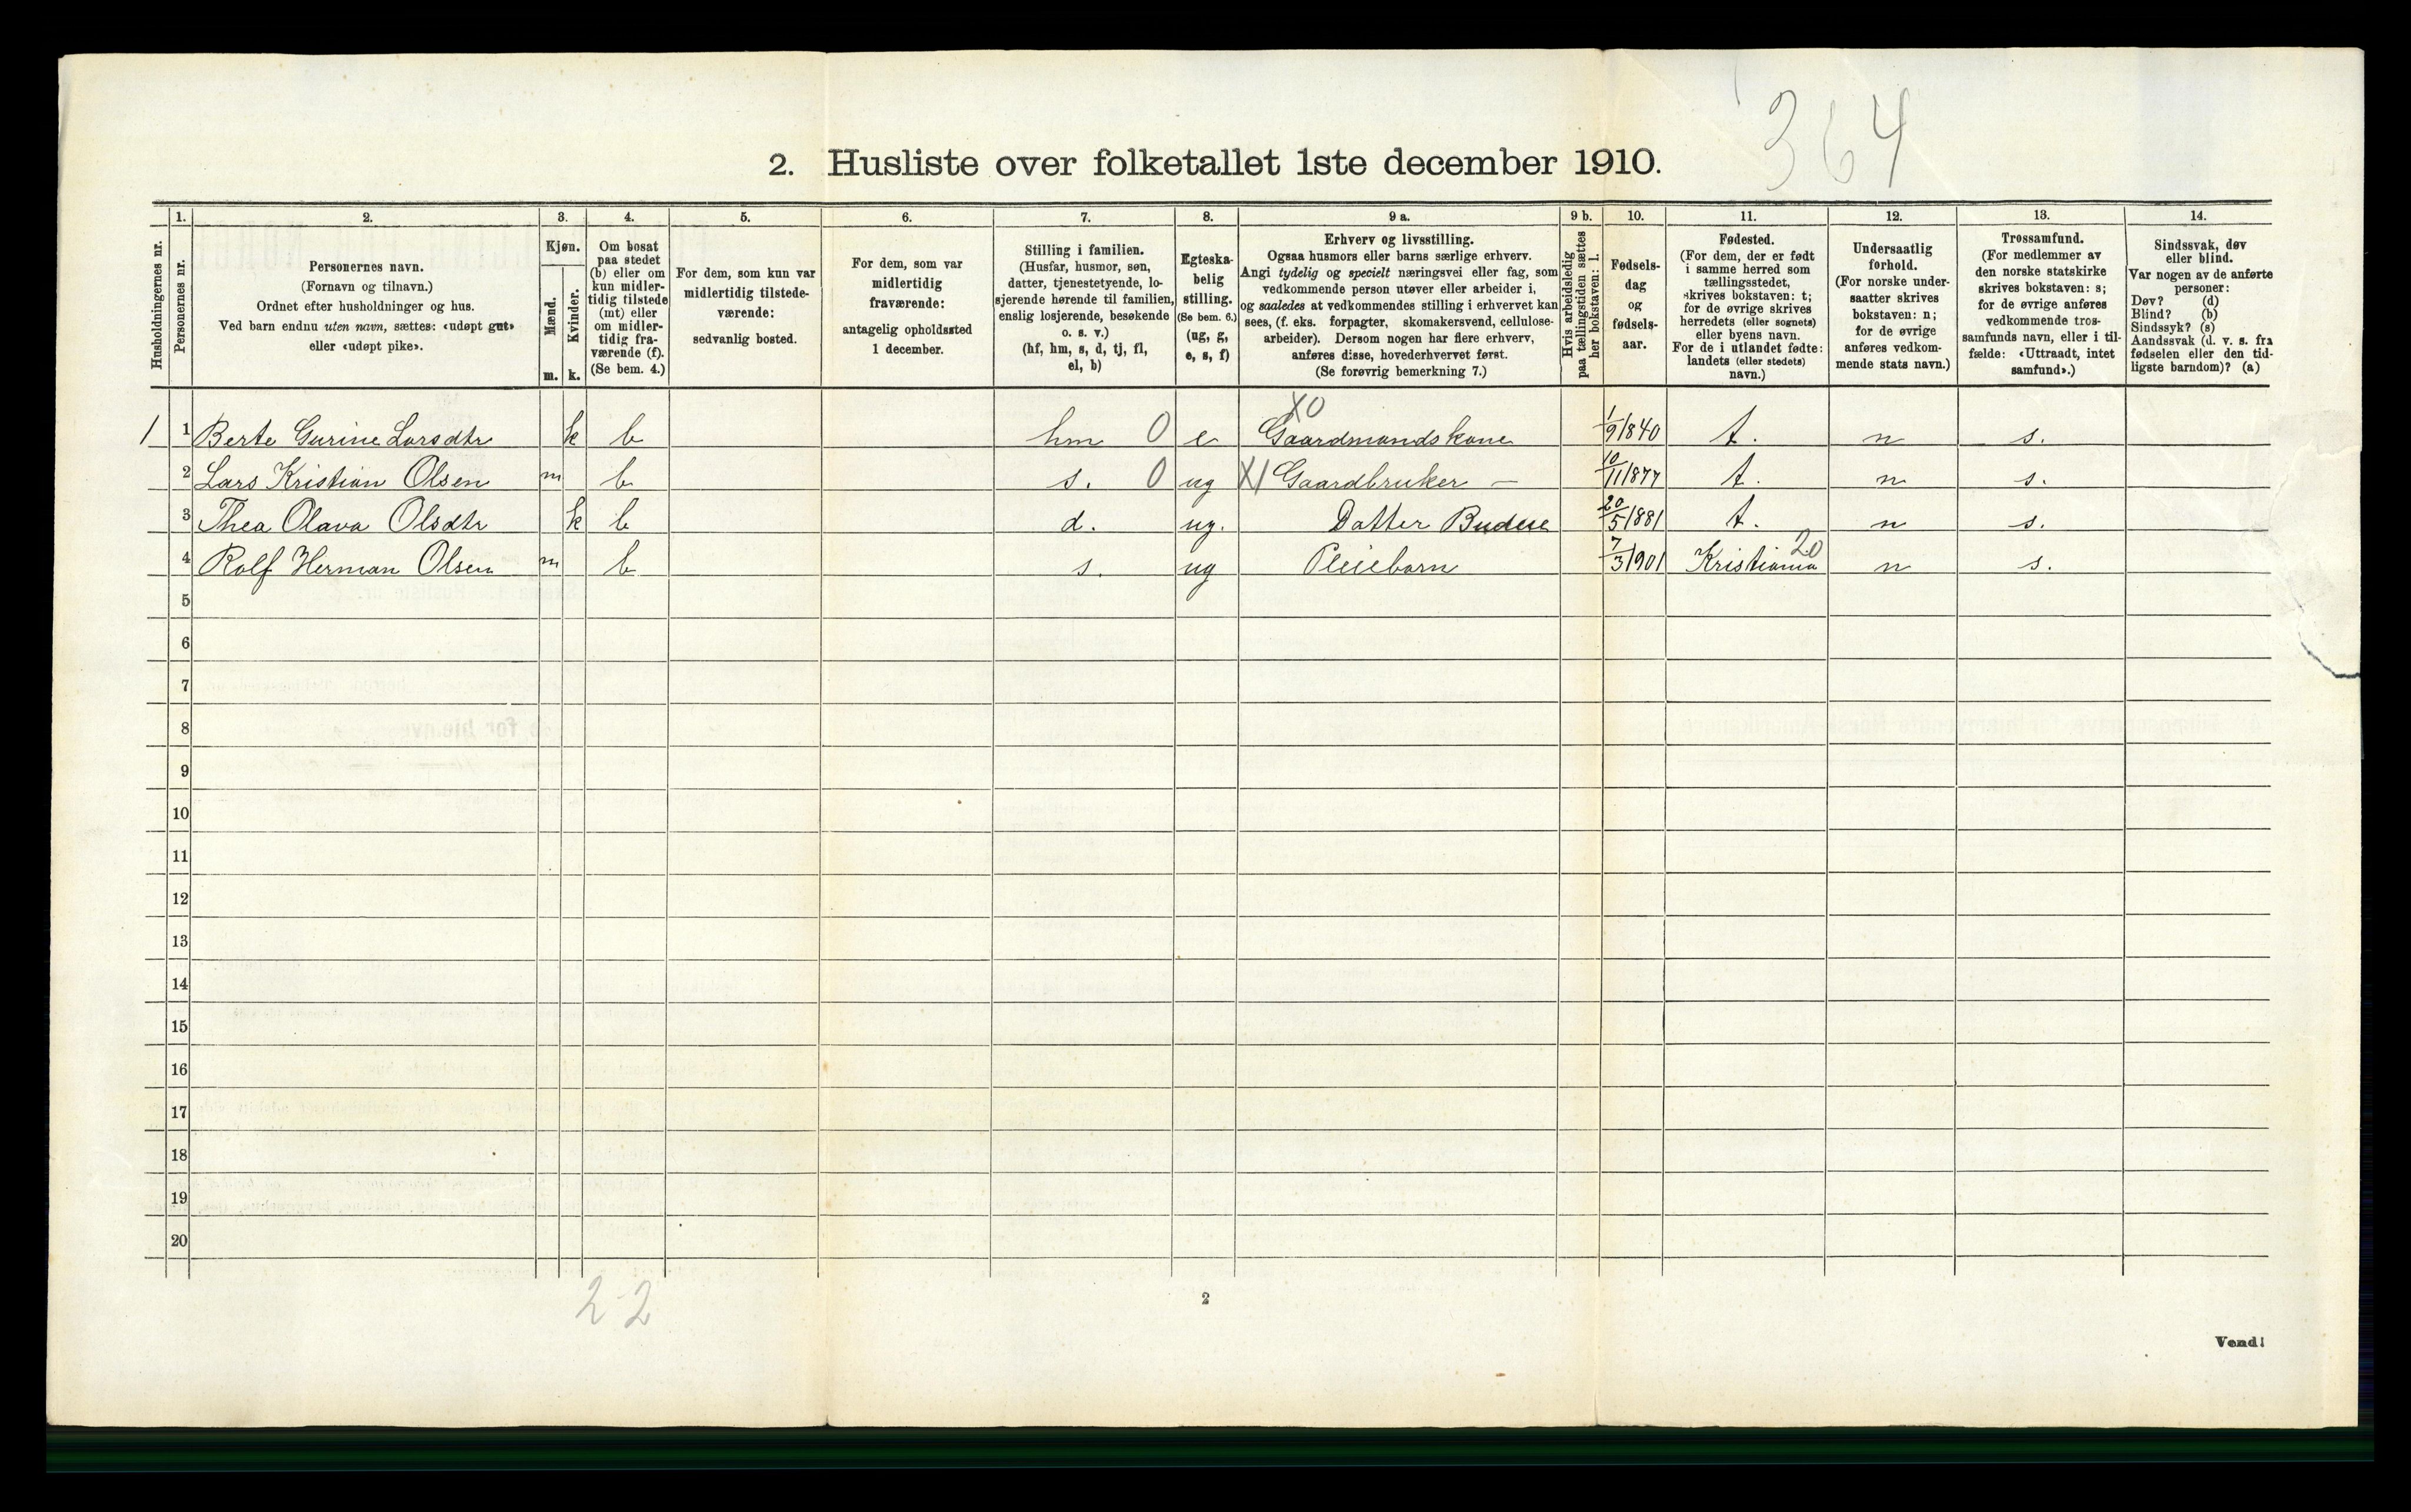 364
2. Husliste over folketallet 1ste december 1910.
Husholdningernes nr.
1.
Personernes nr.
2.
Personernes navn.
(Fornavn og tilnavn.)
Ordnet efter husholdninger og hus.
Ved barn endnu uten navn, sættes: «udøpt gut»
eller «udøpt pike».
3.
Kjøn.
Mænd.
m.
Kvinder.
k.
4.
Om bosat
paa stedet
(b) eller om
kun midler-
tidig tilstede
(mt) eller
om midler-
tidig fra-
værende (f).
(Se bem. 4.)
5.
For dem, som kun var
midlertidig tilstede-
værende:
sedvanlig bosted.
6.
For dem, som var
midlertidig
fraværende:
antagelig opholdssted
1 december.
7.
Stilling i familien.
(Husfar, husmor, søn,
datter, tjenestetyende, lo-
sjerende hørende til familien,
enslig losjerende, besøkende
o. s. v.)
(hf, hm, s, d, tj, fl,
el, b)
8.
Egteska-
belig
stilling.
(Se bem. 6.)
(ug, g,
e, s, f)
9 a.
Erhverv og livsstilling.
Ogsaa husmors eller barns særlige erhverv.
Angi tydelig og specielt næringsvei eller fag, som
vedkommende person utøver eller arbeider i,
og saaledes at vedkommendes stilling i erhvervet kan
sees, (f. eks. forpagter, skomakersvend, cellulose-
arbeider). Dersom nogen har flere erhverv,
anføres disse, hovederhvervet først.
(Se forøvrig bemerkning 7.)
9 b.
Hvis arbeidsledig
paa tællingstiden sættes
her bokstaven: l.
10.
Fødsels-
dag
og
fødsels-
aar.
11.
Fødested.
(For dem, der er født
i samme herred som
tællingsstedet,
skrives bokstaven: t;
for de øvrige skrives
herredets (eller sognets)
eller byens navn.
For de i utlandet fødte:
landets (eller stedets)
navn.)
12.
Undersaatlig
forhold.
(For norske under-
saatter skrives
bokstaven: n;
for de øvrige
anføres vedkom-
mende stats navn.)
13.
Trossamfund.
(For medlemmer av
den norske statskirke
skrives bokstaven: s;
for de øvrige anføres
vedkommende tros-
samfunds navn, eller i til-
fælde: «Uttraadt, intet
samfund».)
14.
Sindssvak, døv
eller blind.
Var nogen av de anførte
personer:
Døv? (d)
Blind? (b)
Sindssyk? (s)
Aandssvak (d. v. s. fra
fødselen eller den tid-
ligste barndom)? (a)
X0
1 1 Berte Gurine Larsdtr k b hm 0 e Gaardmandskone 1/9 1840 t. n s.
2 Lars Kristian Olsen m b s. 0 ug X1 Gaardbruker — 10/11 1877 t. n s.
3 Thea Olava Olsdtr k b d. ug. Datter Budeie 20/5 1881 t. n s.
20
4 Rolf Herman Olsen m b s. ug Pleiebarn 7/3 1901 Kristiania n s.
5
6
7
8
9
10
11
12
13
14
15
16
17
18
19
20
2 2
2
Vend!